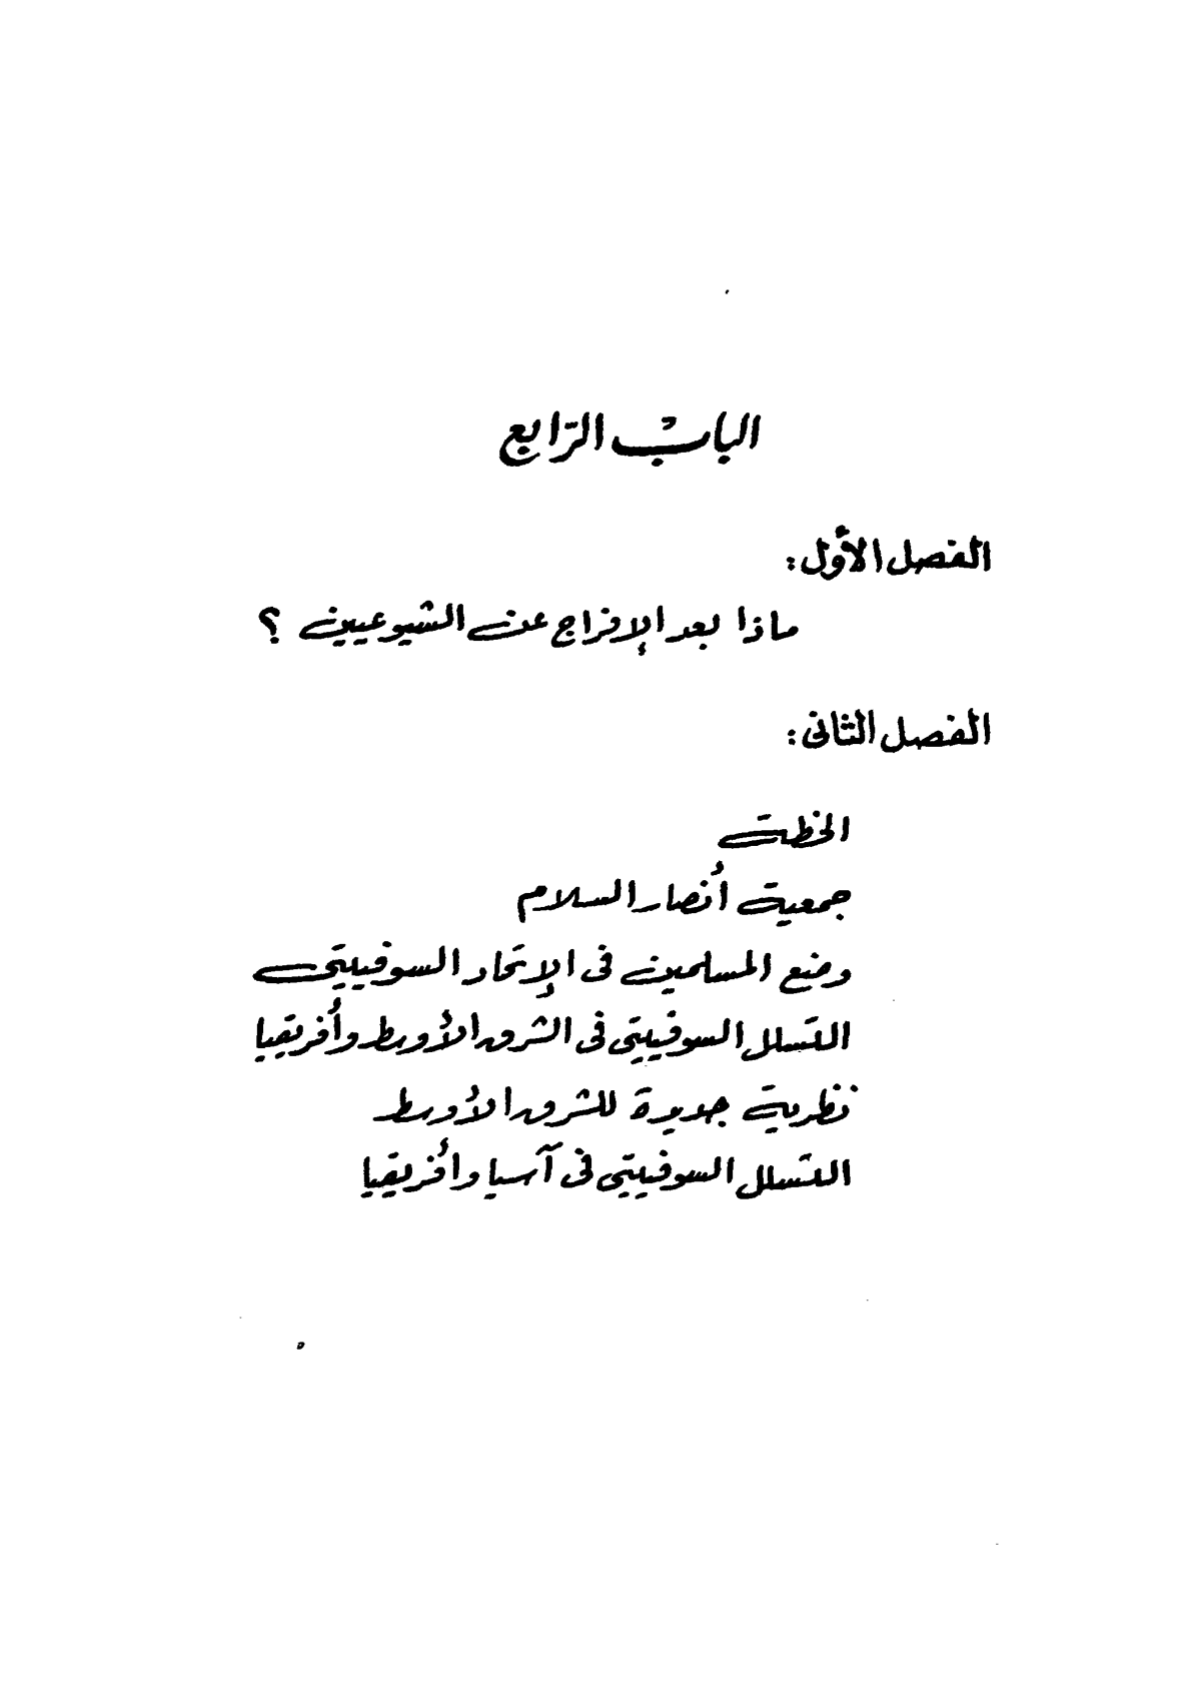 الباب الرابع
الفصل الأول:
ماذا بعد الإفراج عن الشيوعيين ؟
الفصل الثانى:
الخطة
جمعية أنصار السلام
وضع المسلمين فى الإتحاد السوفييتى
التسلل السوفييتى فى الشرق الأوسط وأفريقيا
نظرية جديدة للشرق الأوسط
التسلل السوفييتى فى آسيا وأفريقيا